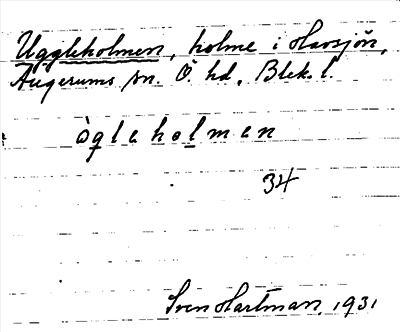 Uggleholmen, holme i Havsjön,
Augerums sn. Ö. hd, Blek. l.
ògleholmen
34
Sven Hartman 1931